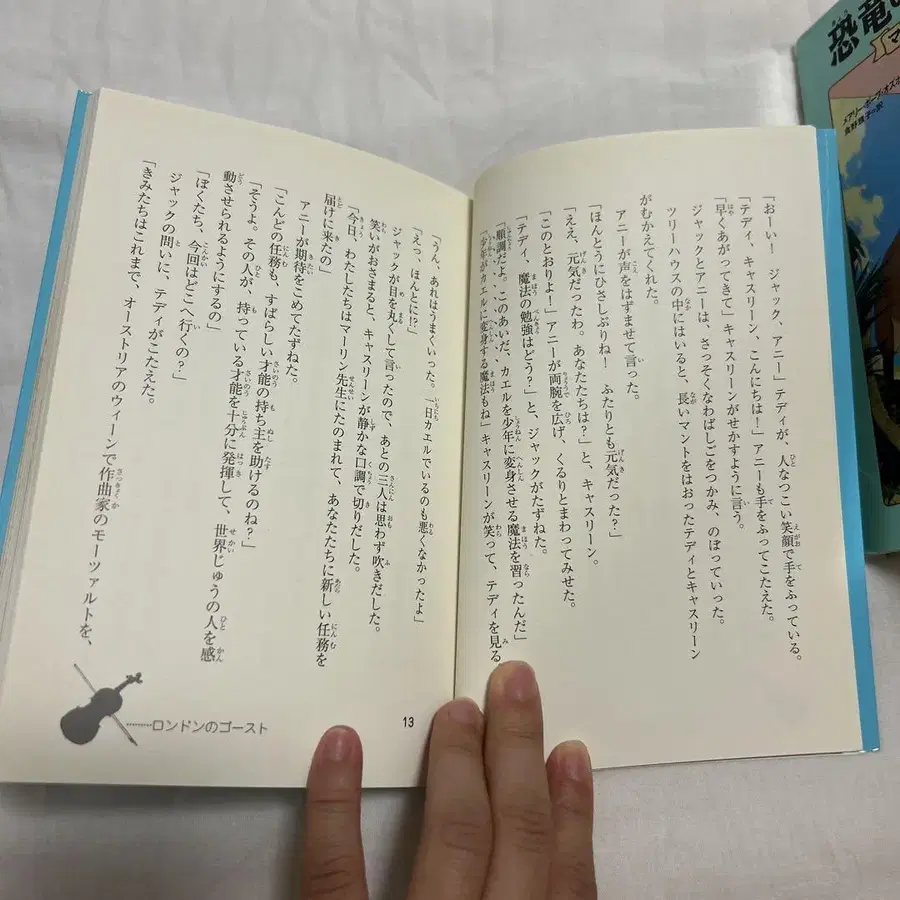 「おーい！　ジャック、アニー」テディが、人なつこい笑顔で手をふっている。
「テディ、キャスリーン、こんにちは！」アニーも手をふってこたえた。
「早くあがってきて」キャスリーンがせかすように言う。
ジャックとアニーは、さっそくなわばしごをつかみ、のぼっていった。
ツリーハウスの中にはいると、長いマントをはおったテディとキャスリーン
がむかえてくれた。
アニーが声をはずませて言った。
「ほんとうにひさしぶりね！　ふたりとも元気だった？」
「ええ、元気だったわ。あなたたちは？」と、キャスリーン。
「このとおりよ！」アニーが両腕を広げ、くるりとまわってみせた。
「テディ、魔法の勉強はどう？」と、ジャックがたずねた。
「順調だよ。このあいだ、カエルを少年に変身させる魔法を習ったんだ」
「少年がカエルに変身する魔法もね」キャスリーンが笑って、テディを見る。
「うん、あれはうまくいった。一日カエルでいるのも悪くなかったよ」
「えっ、ほんとに!?」
ジャックが目を丸くして言ったので、あとの三人は思わず吹きだした。
笑いがおさまると、キャスリーンが静かな口調で切りだした。
「今日、わたしたちはマーリン先生にたのまれて、あなたたちに新しい任務を
届けに来たの」
アニーが期待をこめてたずねた。
「こんどの任務も、すばらしい才能の持ち主を助けるのね？」
「そうよ。その人が、持っている才能を十分に発揮して、世界じゅうの人を感
動させられるようにするの」
「ぼくたち、今回はどこへ行くの？」
ジャックの問いに、テディがこたえた。
「きみたちはこれまで、オーストリアのウィーンで作曲家のモーツァルトを、
13
………ロンドンのゴースト
恐竜
メアリー・ポープ・オズ
食野雅子訳